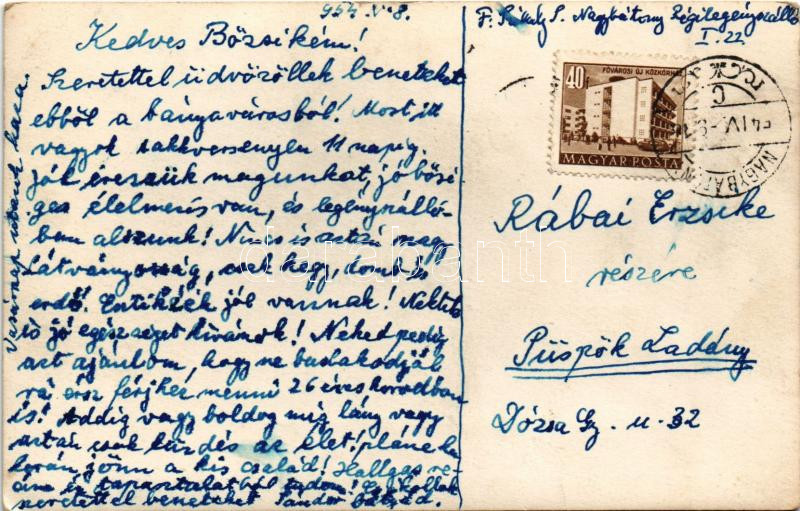 954.V.8.
Kedves Bözsikém!
Szeretettel üdvözöllek benneteket
ebből a bányavárosból! Most itt
vagyok sakkversenyen 11 napig.
Jól érezzük magunkat, jó bősé-
ges élelmezés van, és legényszálló-
ban alszunk! Nincs is aztán nagy
Látványosság, csak hegy, domb és
erdő. Entikéék jól vannak! Nektek
is jó egészséget kívánok! Neked pedig
azt ajánlom, hogy ne buslakodjál
rá érsz férjhez menni 26 éves korodban
is! Addig vagy boldog míg lány vagy
aztán csak küzdés az élet! pláne ha
korán jönn a kis család! Hallgas re-
ám én tapasztalatból tudom! Csókollak
szeretettel benneteket Sándor bátyád.
Vasárnap utazok haza.
F. Nagybátony Régilegényszálló
I. 22
40f
FŐVÁROSI ÚJ KÖZKÓRHÁZ
MAGYAR POSTA
NAGYBÁTONY
Rábai Erzsike
részére
Püspök Ladány
Dózsa Gy. u. 32
darabanth